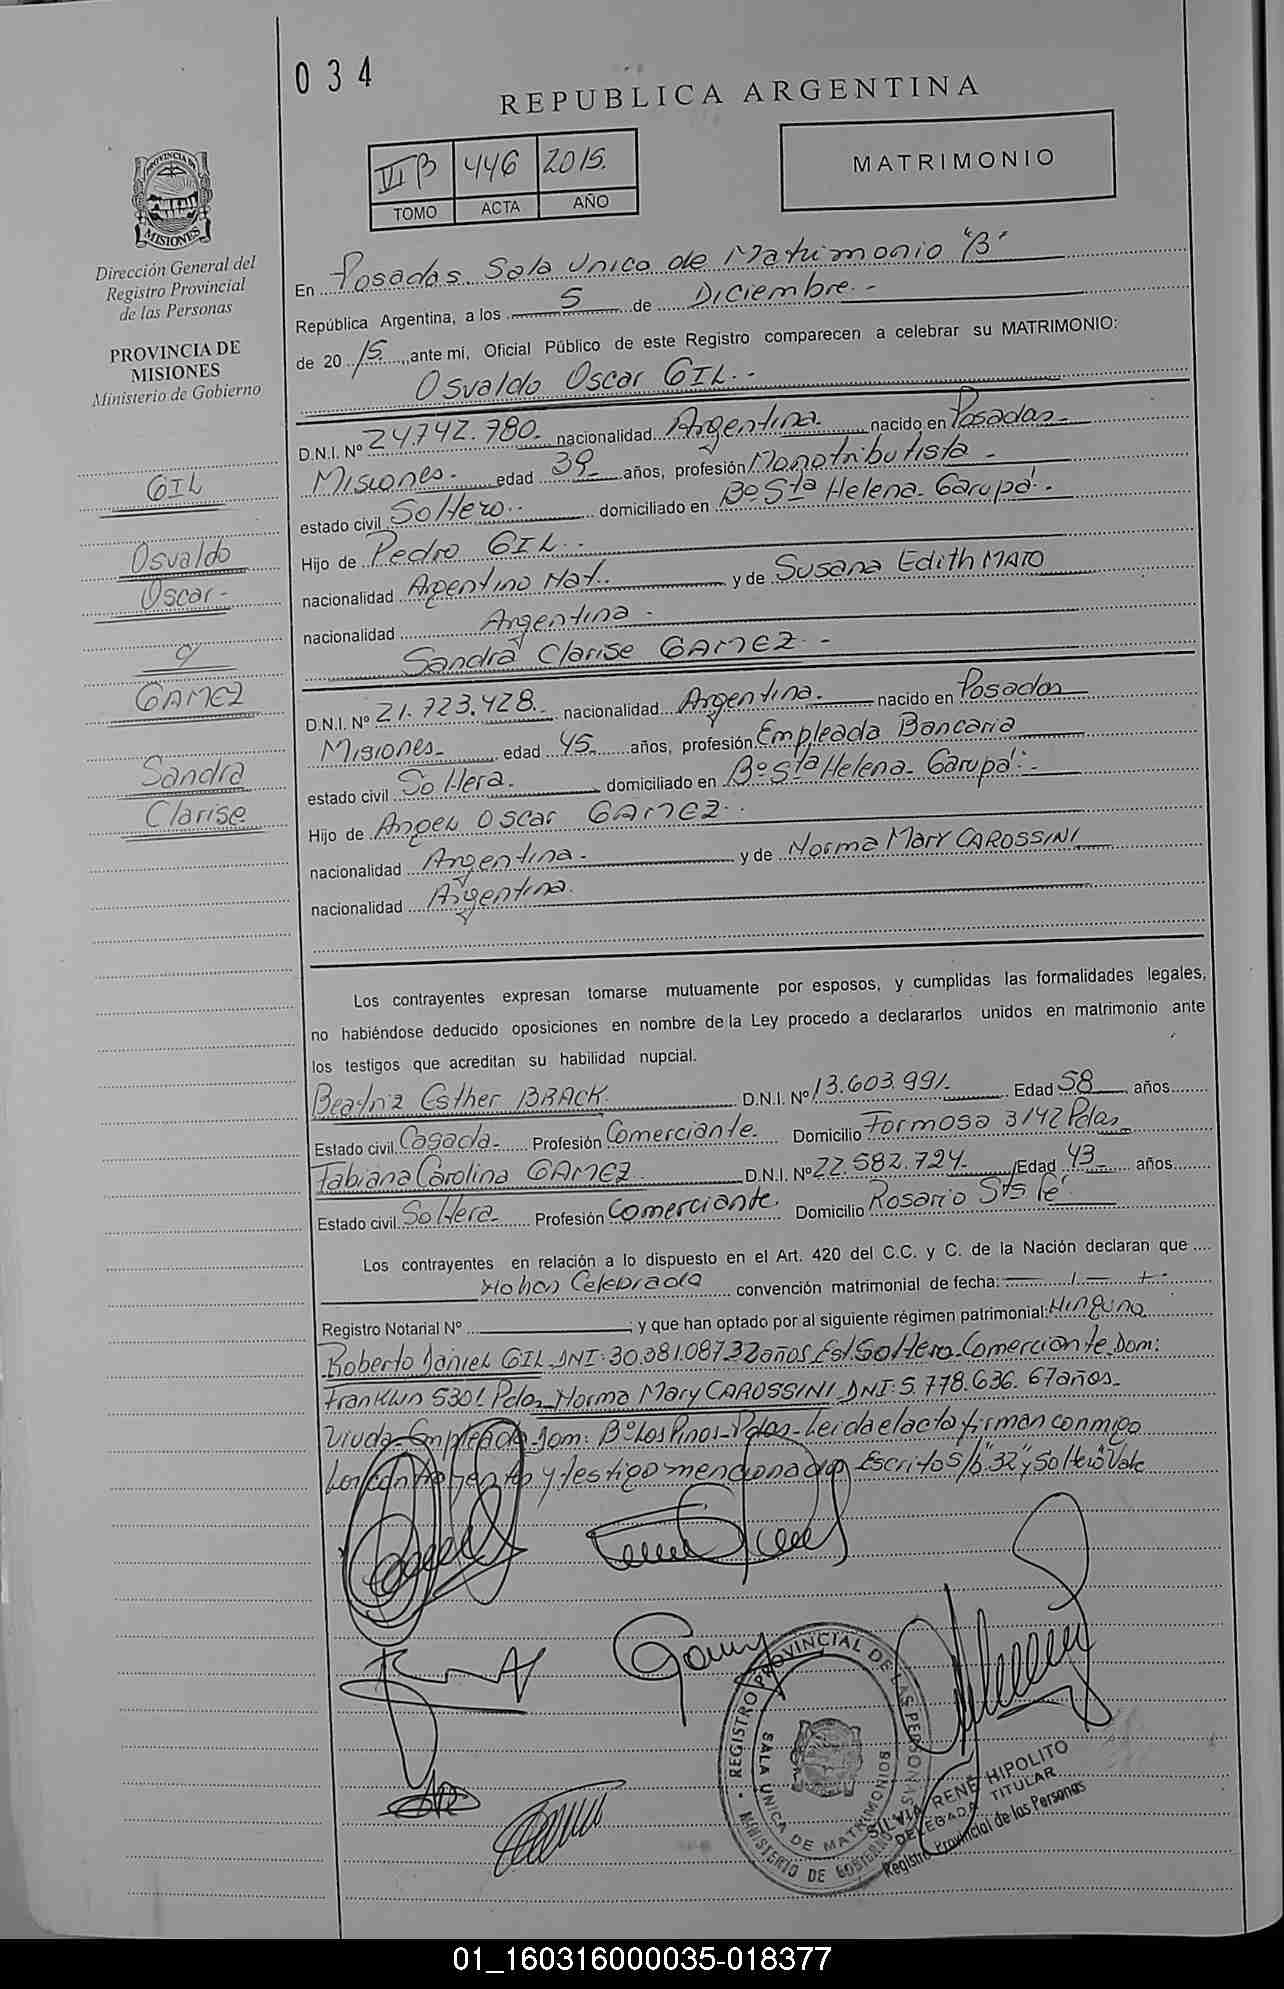 034
REPUBLICA ARGENTINA
VI B 446 2015.
TOMO ACTA AÑO
MATRIMONIO
PROVINCIA DE
MISIONES
Dirección General del
Registro Provincial
de las Personas
PROVINCIA DE
MISIONES
Ministerio de Gobierno
GIL
Osvaldo
Oscar-
y
GAMEZ
Sandra
Clarise
En Posadas Sala Unica de Matrimonio "B"
República Argentina, a los 5 de Diciembre.-
de 2015, ante mí, Oficial Público de este Registro comparecen a celebrar su MATRIMONIO:
Osvaldo Oscar GIL.-
D.N.I. Nº 24.742.780.- nacionalidad Argentina. nacido en Posadas-
Misiones- edad 39- años, profesión Monotributista-
estado civil Soltero.- domiciliado en Bº Sta Helena- Garupá.
Hijo de Pedro GIL.-
nacionalidad Argentino Nat. y de Susana Edith MATO
nacionalidad Argentina.
Sandra Clarise GAMEZ.-
D.N.I. Nº 21.723.428.- nacionalidad Argentina.- nacido en Posadas
Misiones- edad 45- años, profesión Empleada Bancaria
estado civil Soltera. domiciliado en Bº Sta Helena- Garupá.-
Hijo de Angel Oscar GAMEZ.-
nacionalidad Argentina.- y de Norma Mary CAROSSINI
nacionalidad Argentina.
Los contrayentes expresan tomarse mutuamente por esposos, y cumplidas las formalidades legales,
no habiéndose deducido oposiciones en nombre de la Ley procedo a declararlos unidos en matrimonio ante
los testigos que acreditan su habilidad nupcial.
Beatriz Esther BRACK. D.N.I. Nº 13.603.991. Edad 58 años
Estado civil Casada- Profesión Comerciante. Domicilio Formosa 3142 Pdas
Fabiana Carolina GAMEZ D.N.I. Nº 22.582.724- Edad 43 años
Estado civil Soltera- Profesión Comerciante. Domicilio Rosario Sta Fé
Los contrayentes en relación a lo dispuesto en el Art. 420 del C.C. y C. de la Nación declaran que
No han Celebrado convención matrimonial de fecha:
Registro Notarial Nº ; y que han optado por al siguiente régimen patrimonial: Ninguno
Roberto Daniel GIL-DNI:30.381.087 32 años Est Soltero-Comerciante-Dom:
Franklin 5301 Pdas-Norma Mary CAROSSINI-DNI:5.778.636. 67 años-
Viuda-Empleada-Dom: Bº Los Pinos-Pdas-Leida el acta firman conmigo
Los contrayentes y testigo mencionados Escrito S/b "32" y Soltero Vale
REGISTRO PROVINCIAL DE LAS PERSONAS
SALA UNICA DE MATRIMONIOS
MINISTERIO DE GOBIERNO
SILVIA RENÉ HIPOLITO
DELEGADA TITULAR
Registro Provincial de las Personas
01_160316000035-018377